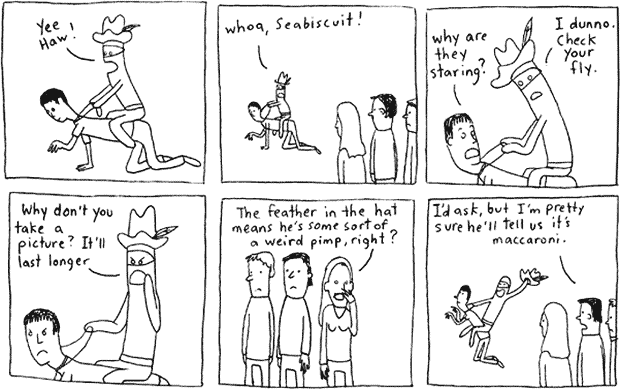 Yee
Haw!
whoa, Seabiscuit!
why are
they
staring?
I dunno.
Check
your
fly.
Why don't you
take a
picture? It'll
last longer
The feather in the hat
means he's some sort of
a weird pimp, right?
I'd ask, but I'm pretty
sure he'll tell us it's
maccaroni.